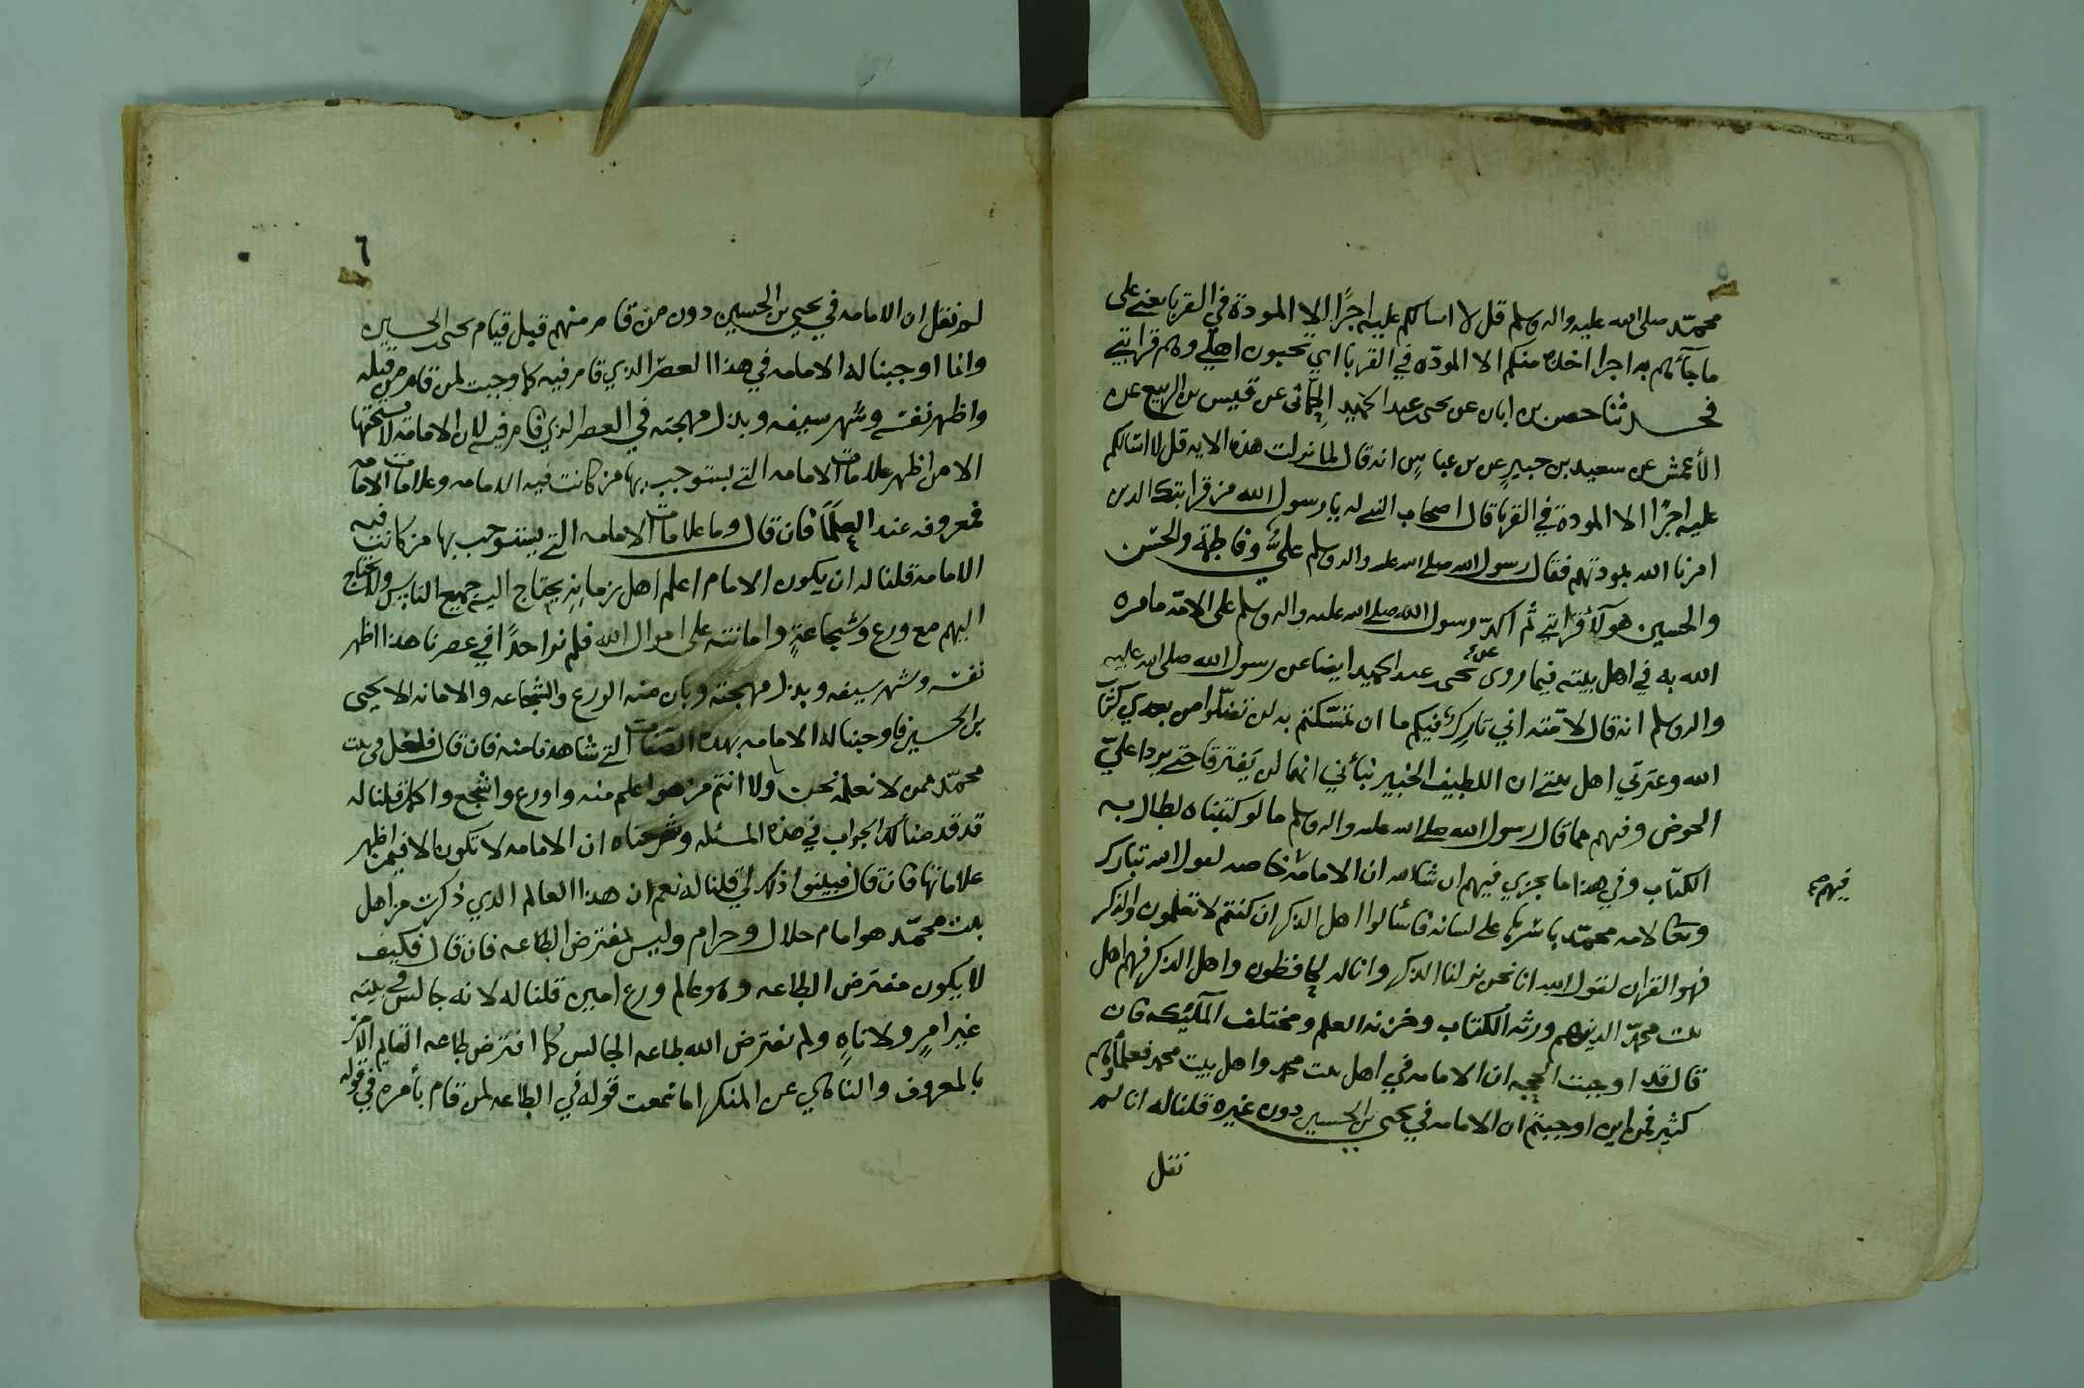 ٥
محمّد صلى الله عليه واله وسلم قل لا اسالكم عليه اجرًا الا المودة في القربا يعني على
ما جآئهم به اجرا اخذه منكم الا المودّه في القربا اي تحبون اهلي وهم قرابتي
فحدثنا حصن بن ابان عن يحى عبد الحميد الحماني عن قيس بن الربيع عن
الأعمش عن سعيد بن جبير عن بن عباس انه قال لما نزلت هذه الايه قل لا اسالكم
عليه اجرًا الا المودة في القربا قال اصحاب النبي له يا رسول الله من قرابتك الذين
امرنا الله بمودتهم فقال رسول الله صلى الله عليه واله وسلم عليٌّ وفاطمة والحسن
والحسين هولآء قرابتي ثم اكد رسول الله صلى الله عليه واله وسلم على الامّه ما امره
الله به في اهل بيته فيما روى عن يحى عبد الحميد ايضا عن رسول الله صلى الله عليه
واله وسلم انه قال لامّته اني تارك فيكم ما ان تمسّكتم به لن تضلّوا من بعدي كتاب
الله وعترتي اهل بيتي ان اللطيف الخبير نبأني انهما لن يفترقا حتى يردا عليّ
الحوض وفيهم مما قال رسول الله صلى الله عليه واله وسلم ما لو كتبناه لطال به
الكتاب وفي هذا ما يجزي فيهم ان شاالله ان الامامة خاصه لقول الله تبارك
فيهم صح
وتعا لامه محمّد باشرها على لسانه فاسألوا اهل الذكر ان كنتم لا تعلمون والذكر
فهو القران لقول الله انا نحن نزلنا الذكر وانا له لحافظون واهل الذكر فهم اهل
بيت محمّد الذين هم ورثه الكتاب وخزنه العلم ومختلف الملئكه فان
قال قد اوجبت الحجه ان الامامه في اهل بيت محمد واهل بيت محمد فعلماؤهم
كثير فمن اين اوجبتم ان الامامه في يحيى بن الحسين دون غيره قلنا له انا لم
نقل
٦
لم نقل ان الامامه في يحيى بن الحسين دون من قام منهم قبل قيام يحى بن الحسين
وانما اوجبنا له الامامه في هذا العصر الذي قام فيه كما وجبت لمن قام من قبله
واظهر نفسه وشهر سيفه وبذل مهجته في العصر الذي قام فيه لان الامامه لا يستحقها
الا من اظهر علامات الامامه التي يستوجب بها من كانت فيه الامامه وعلامات الامامه
فمعروفه عند العلمآ فان قال وما علامات الامامه التي يستوجب بها من كانت فيه
الامامة قلنا له ان يكون الامام اعلم اهل زمانه يحتاج اليه جميع الناس ولا يحتاج
اليهم مع ورع وشجاعةٍ وامانته على اموال الله فلم نر احدًا في عصرنا هذا اظهر
نفسه وشهر سيفه وبذل مهجته وبان منه الورع والشجاعه والامانه الا يحيى
بن الحسين فاوجبنا له الامامه بهذه الصفات التي شاهدنا منه فان قال فلعل في بيت
محمّد ممن لا نعلمه نحن ولا انتم من هو اعلم منه واورع واشجع واكمل قلنا له
قد قدمنا لك الجواب في هذه المسئله وشرحناه ان الامامه لا تكون الا فيمن اظهر
علاماتها فان قال فبينوا ذلك لي قلنا له نعم ان هذا العالم الذي ذكرت من اهل
بيت محمّد هو امام حلال وحرام وليس بمفترض الطاعه فان قال فكيف
لا يكون مفترض الطاعه وهو عالم ورع امين قلنا له لانه جالس في بيته
غير امرٍ ولا ناهٍ ولم يفترض الله طاعه الجالس كما افترض طاعه القايم الآمر
بالمعروف والناهي عن المنكر اما سمعت قوله في الطاعه لمن قام بأمره في قوله